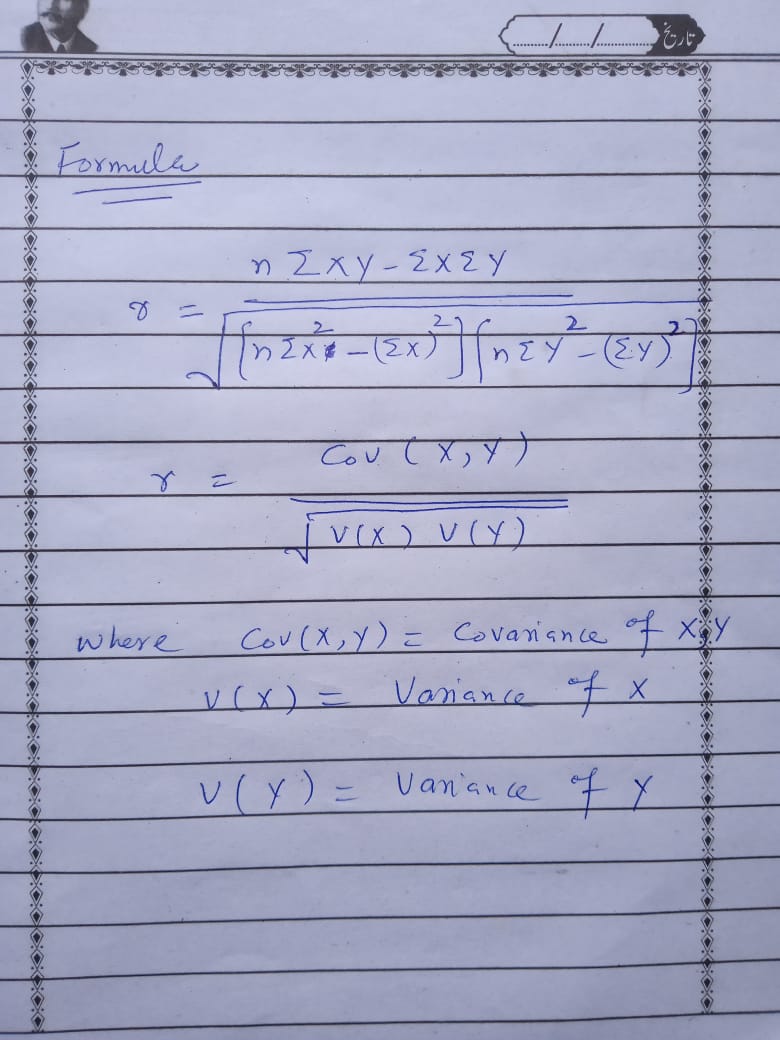 تاریخ ....../....../......
Formula
r = n Σ XY - ΣXΣY / √[nΣX² - (ΣX)²][nΣY² - (ΣY)²]
r = Cov (X, Y) / √V(X) V(Y)
where Cov(X, Y) = Covariance of X, Y
V(X) = Variance of X
V(Y) = Variance of Y